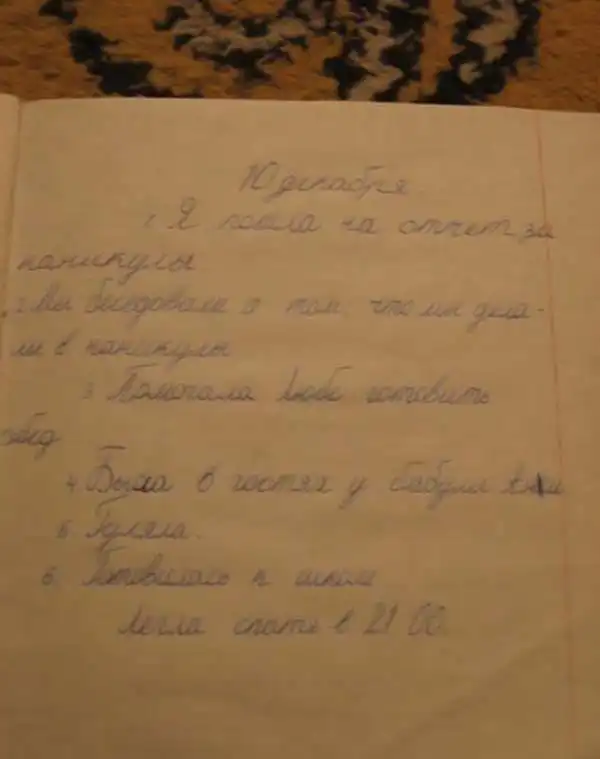 10 декабря
1. Я пошла на отчет за
каникулы
2. Мы беседовали о том, что мы дела-
ли в каникулы
3. Помогала Любе готовить
обед
4. Была в гостях у бабули Ани
5. Гуляла.
6. Готовилась к школе
Легла спать в 21 00